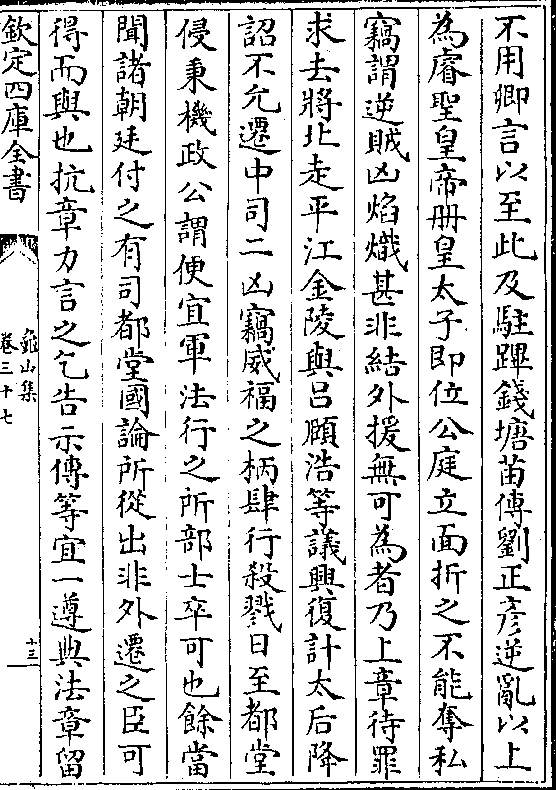 不用卿言以至此及駐蹕錢塘苗傅劉正彦逆亂以上
為睿聖皇帝冊皇太子即位公庭立面折之不能奪私
竊謂逆賊凶焰熾甚非結外援無可為者乃上章待罪
求去將北走平江金陵與吕頤浩等議興復計太后降
詔不允遷中司二凶竊威福之柄肆行殺戮日至都堂
侵秉機政公謂便宜軍法行之所部士卒可也餘當
聞諸朝廷付之有司都堂國論所從出非外遷之臣可
得而與也抗章力言之乞告示傅等宜一遵典法章留
欽定四庫全書
龜山集
卷三十七
十三